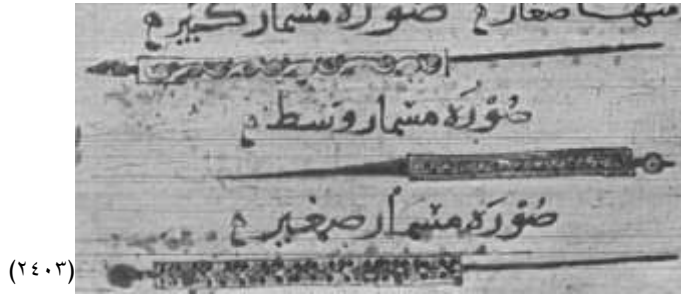 منها صغار م صورة مسمار كبير م
صورة مسمار وسط م
صورة مسمار صغير م
(٢٤٠٣)